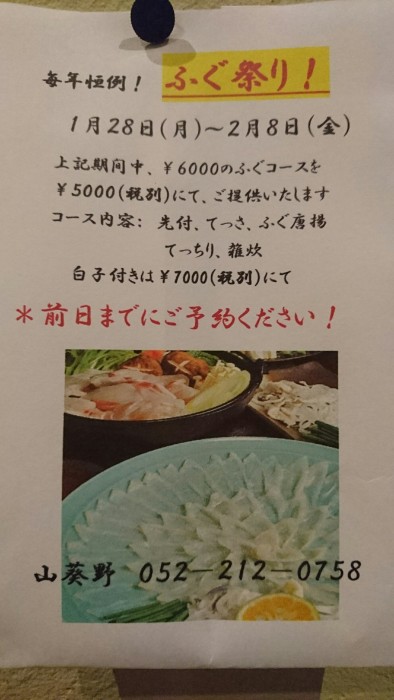 毎年恒例！ ふぐ祭り！
1月28日(月)～2月8日(金)
上記期間中、￥6000のふぐコースを
￥5000(税別)にて、ご提供いたします
コース内容： 先付、てっさ、ふぐ唐揚
てっちり、雑炊
白子付きは￥7000(税別)にて
＊前日までにご予約ください！
山葵野 052－212－0758